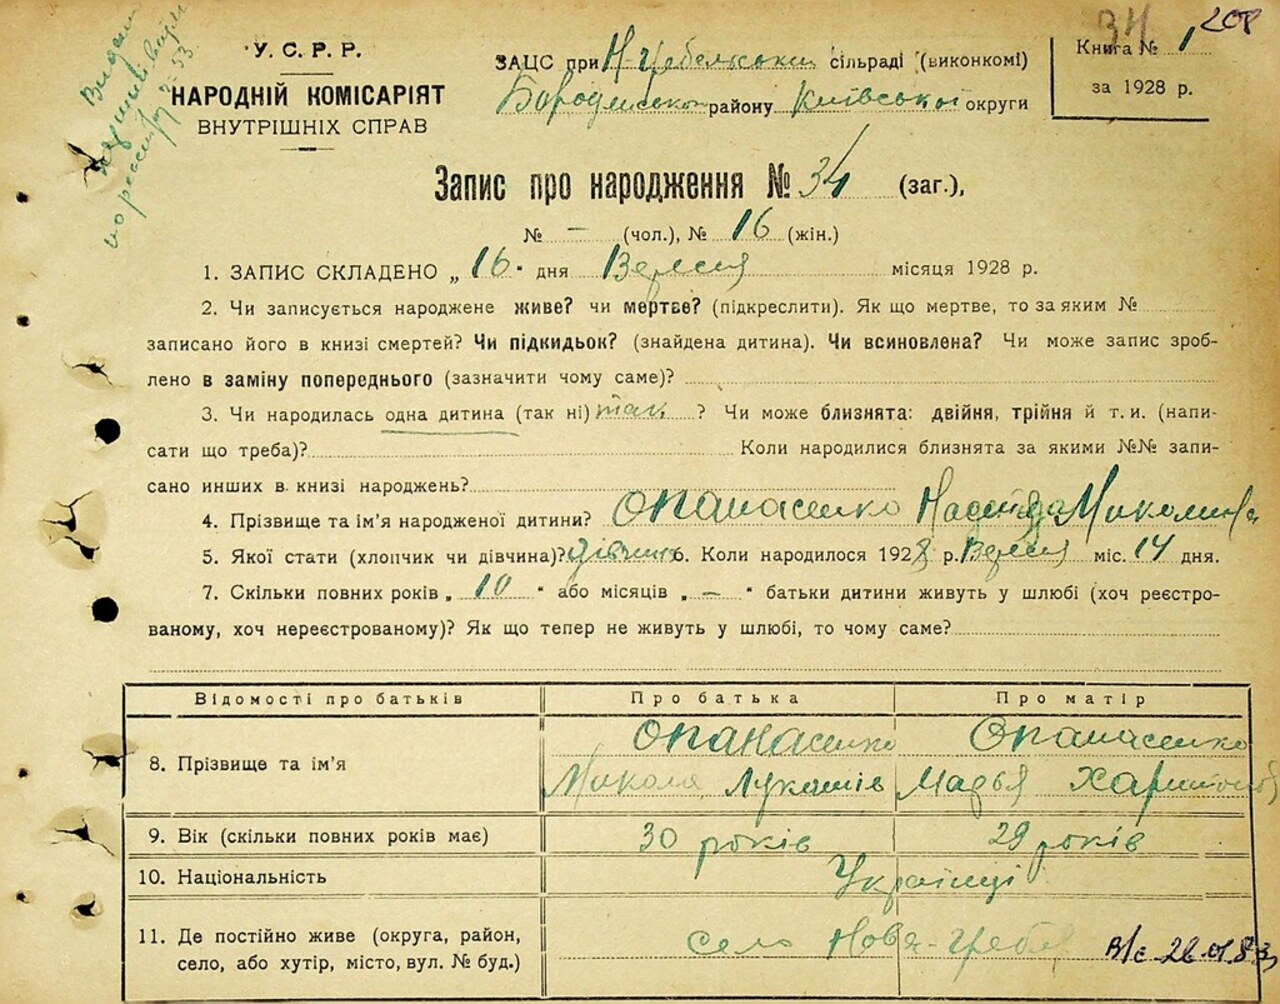 34 208
У. С. Р. Р.
НАРОДНІЙ КОМІСАРІЯТ
ВНУТРІШНІХ СПРАВ
ЗАЦС при Н-Гребельській сільраді (виконкомі)
Бородянського району Київської округи
Книга № 1
за 1928 р.
Запис про народження № 34 (заг.),
№ – (чол.), № 16 (жін.)
1. ЗАПИС СКЛАДЕНО „ 16 " дня Вересня місяця 1928 р.
2. Чи записується народжене живе? чи мертве? (підкреслити). Як що мертве, то за яким №
записано його в книзі смертей? Чи підкидьок? (знайдена дитина). Чи всиновлена? Чи може запис зроб-
лено в заміну попереднього (зазначити чому саме)?
3. Чи народилась одна дитина (так ні) так ? Чи може близнята: двійня, трійня й т. и. (напи-
сати що треба)? Коли народилися близнята за якими №№ запи-
сано инших в книзі народжень?
4. Прізвище та ім’я народженої дитини? Опанасенко Надежда Миколаївна
5. Якої стати (хлопчик чи дівчина)? дівчина 6. Коли народилося 1928 р. Вересня міс. 14 дня.
7. Скільки повних років „ 10 " або місяців „ – " батьки дитини живуть у шлюбі (хоч реєстро-
ваному, хоч нереєстрованому)? Як що тепер не живуть у шлюбі, то чому саме?
Відомості про батьків Про батька Про матір
8. Прізвище та ім’я Опанасенко Микола Лукашів Опанасенко Марья Харитонов
9. Вік (скільки повних років має) 30 років 29 років
10. Національність Українці
11. Де постійно живе (округа, район,
село, або хутір, місто, вул. № буд.) село Нова-Гребля